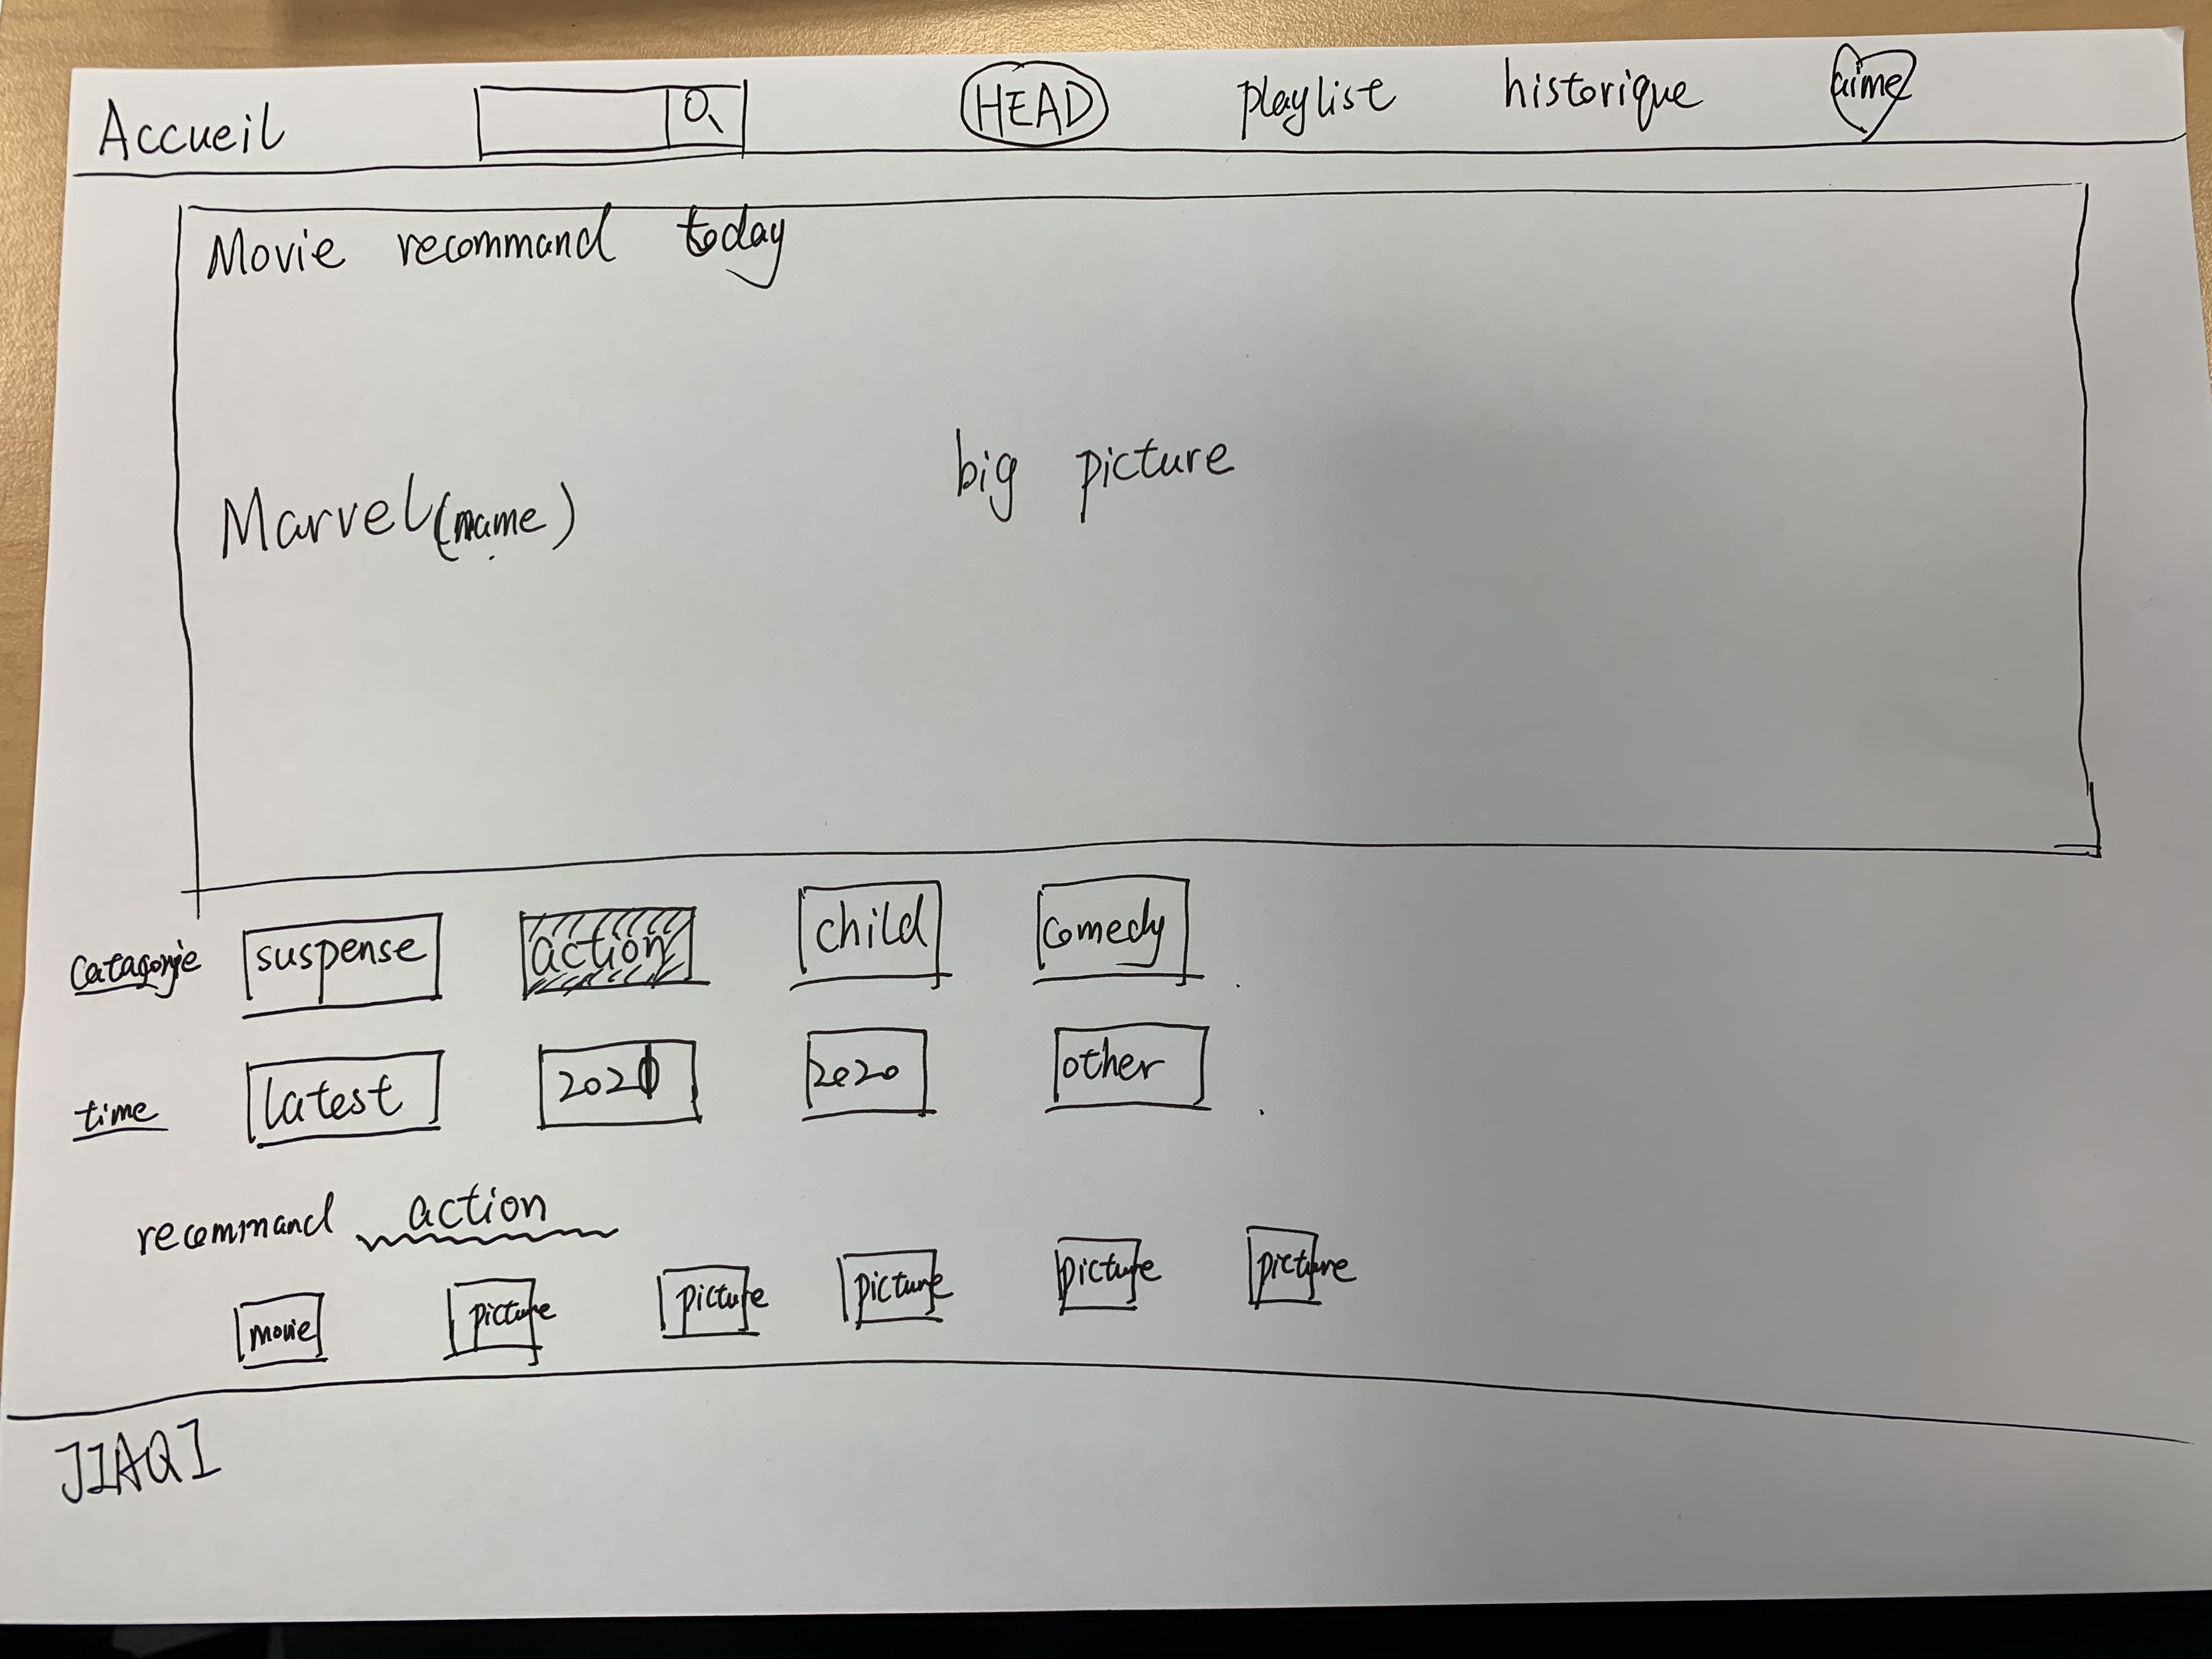 Accueil HEAD playliste historique aime
Movie recommand today
Marvel (name)
big picture
Catagorie suspense action child Comedy
time latest 2021 2020 other
recommand action
movie picture picture picture picture picture
JIAQI